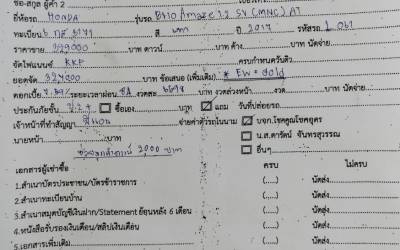 ชื่อ-สกุล ผู้ค้ำ 2
ยี่ห้อรถ HONDA รุ่นรถ Brio Amaze 1.2 SV (MNC) AT
ทะเบียน สี เทา ปี 2017 รหัสรถ
ราคาขาย 329000 บาท ดาวน์ บาท ค้าง บาท นัดจ่าย
จัดไฟแนนซ์ KKP ครบกำหนดรับตัว
ยอดจัด บาท ข้อเสนอ (เพิ่มเติม) * FW = dold
ดอกเบี้ย ระยะเวลาผ่อน งวดละ บาท งวดล่วงหน้า บาท นัดจ่าย
ประกันภัยชั้น ซื้อเอง บาท แถม วันที่ปล่อยรถ
เจ้าหน้าที่ทำสัญญา จ่ายค่าตัวรถในนาม บจก.โชคคูณโชคออูดร
นายหน้า บาท น.ส.ดารัตน์ จันทรสุวรรณ
2,000 บาท อื่นๆ
เอกสารผู้เช่าซื้อ ครบ ไม่ครบ
1.สำเนาบัตรประชาชน/บัตรข้าราชการ (....) นัดส่ง
2.สำเนาทะเบียนบ้าน (....) นัดส่ง
3.สำเนาสมุดบัญชีเงินฝาก/Statement ย้อนหลัง 6 เดือน (....) นัดส่ง
4.หนังสือรับรองเงินเดือน/สลิปเงินเดือน (....) นัดส่ง
5.เอกสารเพิ่มเติม (....) นัดส่ง